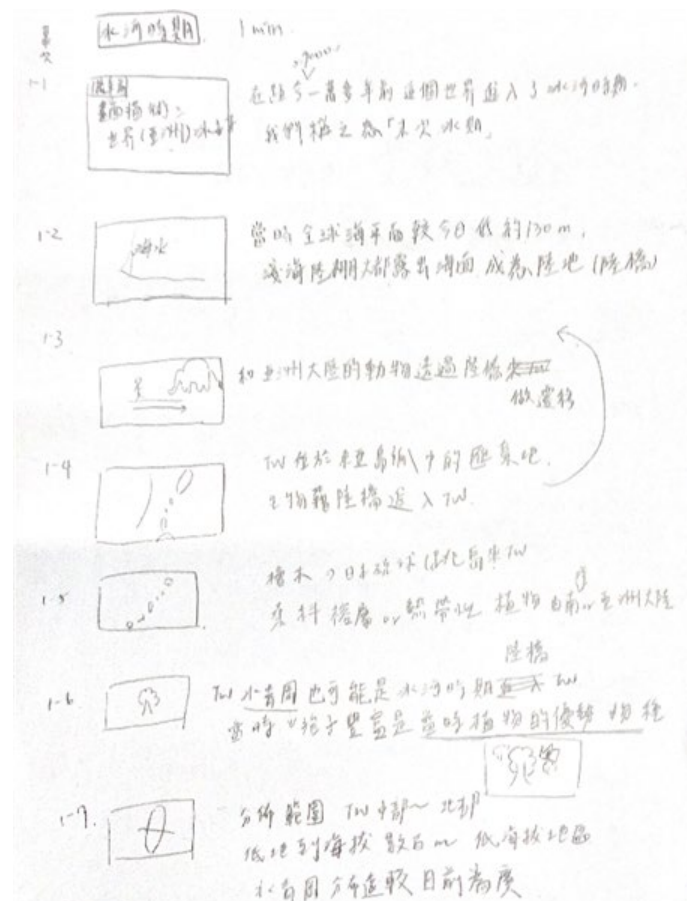 景次
冰河時期 1 min.
1-1
在距今一萬多年前 這個世界進入了冰河時期.
畫面描繪:
我們稱之為「末次冰期」
世界(亞洲)
1-2
當時全球海平面較今日低約130m,
海水
淺海陸棚大都露出海面 成為陸地(陸橋)
1-3
和亞洲大陸的動物透過陸橋
做遷移
1-4
TW位於東亞島弧中的匯集地.
生物藉陸橋進入TW.
1-5
檜木→日本琉球 島來TW
or 熱帶性 植物 南 or 亞洲大陸
陸橋
1-6
TW 水青岡也可能是冰河時期 TW
當時 孢子豐富是當時植物的優勢物種
1-7.
分佈範圍 TW中部~北部
低地到海拔數百m 低海拔地區
水青岡分布遠較目前為廣